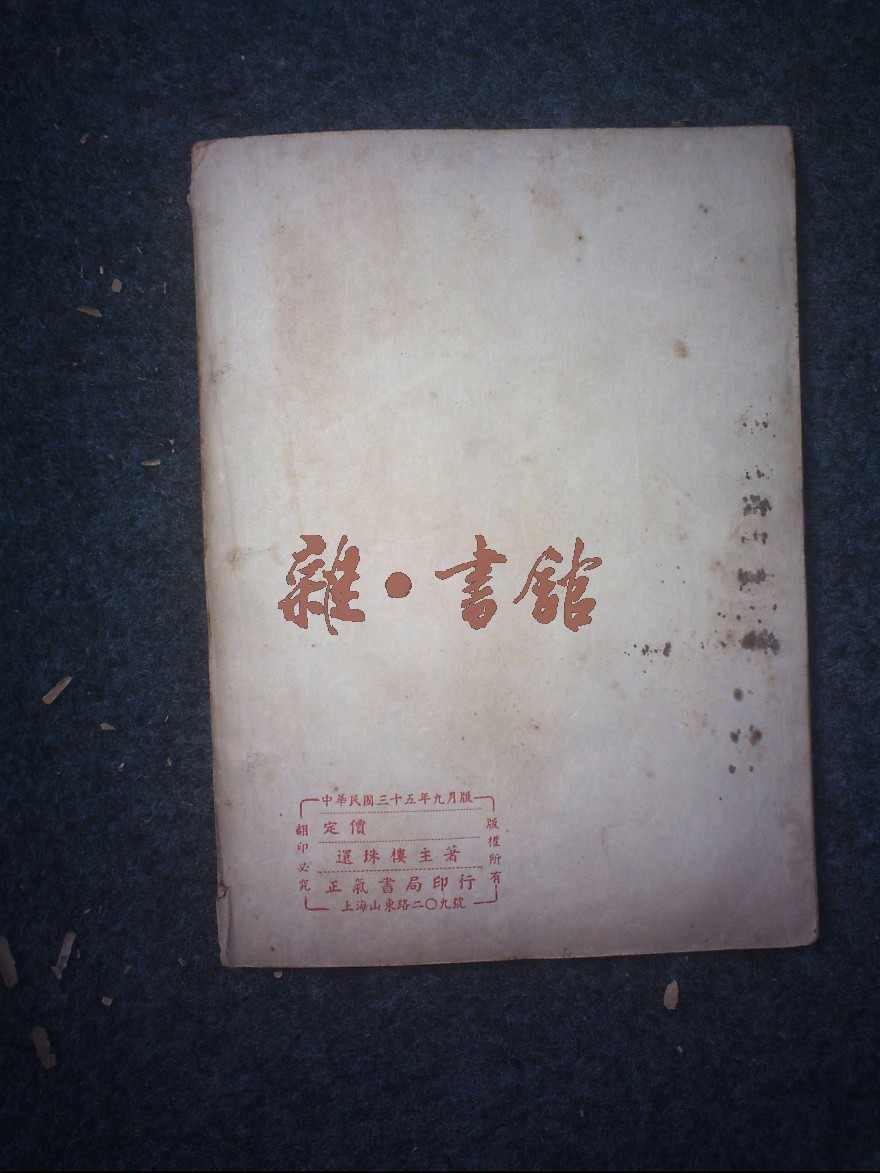 雜·書館
中華民國三十五年九月版
版權所有
翻印必究
定價
還珠樓主著
正氣書局印行
上海山東路二〇九號